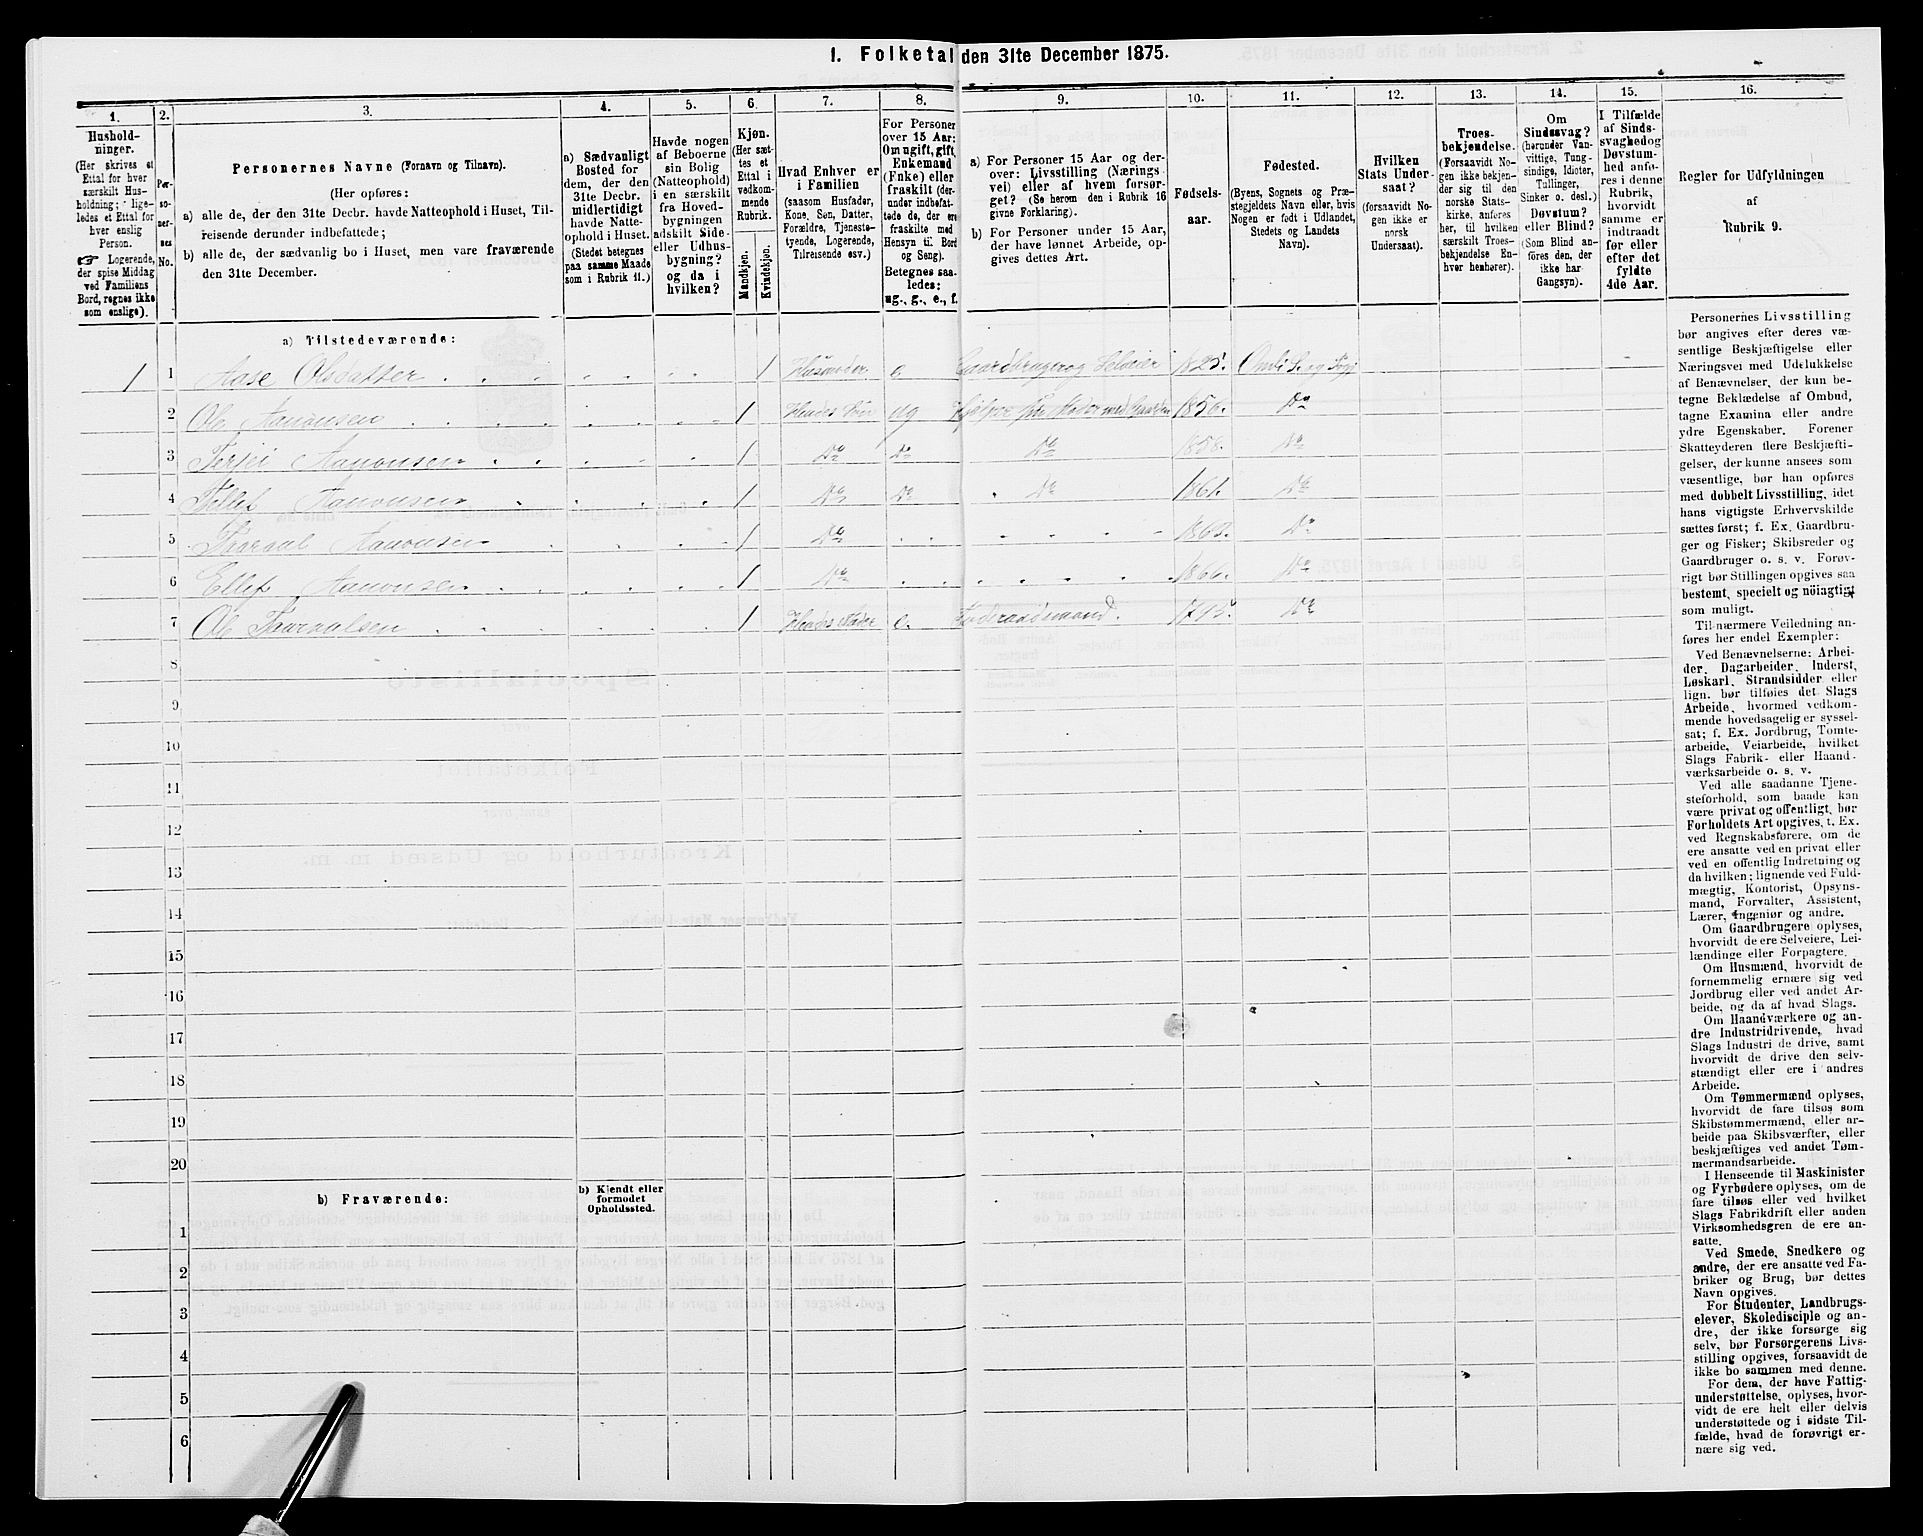 1. Folketal den 31te December 1875.
1.
Hushold-
ninger.
(Her skrives et
Ettal for hver
særskilt Hus-
holdning; lige-
ledes et Ettal for
hver enslig
Person.
☞ Logerende,
der spise Middag
ved Familiens
Bord, regnes ikke
som enslige).
2.
Per-
so-
ner-
nes
No.
3.
Personernes Navne (Fornavn og Tilnavn).
(Her opføres:
a) alle de, der den 31te Decbr. havde Natteophold i Huset, Til-
reisende derunder indbefattede;
b) alle de, der sædvanlig bo i Huset, men vare fraværende
den 31te December.
4.
a) Sædvanligt
Bosted for
dem, der den
31te Decbr.
midlertidigt
havde Natte-
ophold i Huset.
(Stedet betegnes
paa samme Maade
som i Rubrik 11.)
5.
Havde nogen
af Beboerne
sin Bolig
(Natteophold)
i en særskilt
fra Hoved-
bygningen
adskilt Side-
eller Udhus-
bygning?
og da i
hvilken?
6.
Kjøn.
(Her sæt-
tes et
Ettal i
vedkom-
mende
Rubrik.
Mandkjøn.
Kvindekjøn.
7.
Hvad Enhver er
i Familien
(saasom Husfader,
Kone, Søn, Datter,
Forældre, Tjeneste-
tyende, Logerende,
Tilreisende osv.)
8.
For Personer
over 15 Aar:
Om ugift, gift,
Enkemand
(Enke) eller
fraskilt (der-
under indbefat-
tede de, der ere
fraskilte med
Hensyn til Bord
og Seng).
Betegnes saa-
ledes:
ug., g., e., f.
9.
a) For Personer 15 Aar og der-
over: Livsstilling (Nærings-
vei) eller af hvem forsør-
get? (Se herom den i Rubrik 16
givne Forklaring).
b) For Personer under 15 Aar,
der have lønnet Arbeide, op-
gives dettes Art.
10.
Fødsels-
aar.
11.
Fødested.
(Byens, Sognets og Præ-
stegjeldets Navn eller, hvis
Nogen er født i Udlandet,
Stedets og Landets
Navn).
12.
Hvilken
Stats Under-
saat?
(forsaavidt No-
gen ikke er
norsk
Undersaat).
13.
Troes-
bekjendelse.
(Forsaavidt No-
gen ikke bekjen-
der sig til den
norske Stats-
kirke, anføres
her, til hvilken
særskilt Troes-
bekjendelse En-
hver henhører).
14.
Om
Sindssvag?
(herunder Van-
vittige, Tung-
sindige, Idioter,
Tullinger,
Sinker o. desl.)
Døvstum?
eller Blind?
(Som Blind an-
føres den, der
ikke har
Gangsyn).
15.
I Tilfælde
af Sinds-
svaghed og
Døvstum-
hed anfø-
res i denne
Rubrik,
hvorvidt
samme er
indtraadt
før eller
efter det
fyldte
4de Aar.
16.
Regler for Udfyldningen
af
Rubrik 9.
a) Tilstedeværende:
1 1 Aase Olsdatter 1 Husmoder e Gaardbruger og Selveier 1825. Omli S. og Pgj
2 Ole Aanonsen 1 Hendes Søn ug Hjelper sin Moder med Gaarden 1856. Do
3 Terjei Aanonsen 1 Do Do Do 1858. Do
4 Tellef Aanonsen 1 Do Do Do 1861. Do
5 Tharaal Aanonsen 1 Do Do
6 Ellef Aanonsen 1 Do 1866. Do
7 Ole Tharaalsen 1 Hendes Fader e. Føderaadsmand. Do
8
9
10
11
12
13
14
15
16
17
18
19
20
b) Fraværende:
b) Kjendt eller
formodet
Opholdssted.
1
2
3
4
5
6
Personernes Livsstilling
bør angives efter deres væ-
sentlige Beskjæftigelse eller
Næringsvei med Udelukkelse
af Benævnelser, der kun be-
tegne Beklædelse af Ombud,
tagne Examina eller andre
ydre Egenskaber. Forener
Skatteyderen flere Beskjæfti-
gelser, der kunne ansees som
væsentlige, bør han opføres
med dobbelt Livsstilling, idet
hans vigtigste Erhvervskilde
sættes først; f. Ex. Gaardbru-
ger og Fisker; Skibsreder og
Gaardbruger o. s. v. Forøv-
rigt bør Stillingen opgives saa
bestemt, specielt og nöiagtigt
som muligt.
Til nærmere Veiledning an-
føres her endel Exempler:
Ved Benævnelserne: Arbei-
der, Dagarbeider, Inderst,
Løskarl, Strandsidder eller
lign. bør tilføies det Slags
Arbeide, hvormed vedkom-
mende hovedsagelig er syssel-
sat; f. Ex. Jordbrug, Tomte-
arbeide, Veiarbeide, hvilket
Slags Fabrik- eller Haand-
værksarbeide o. s. v.
Ved alle saadanne Tjene-
steforhold, som baade kan
være privat og offentligt, bør
Forholdets Art opgives, t. Ex.
ved Regnskabsførere, om de
ere ansatte ved en privat eller
ved en offentlig Indretning og
da hvilken; lignende ved Fuld-
mægtig, Kontorist, Opsyns-
mand, Forvalter, Assistent,
Lærer, Ingeniør og andre.
Om Gaardbrugere oplyses,
hvorvidt de ere Selveiere, Lei-
lændinge eller Forpagtere.
Om Husmænd, hvorvidt de
fornemmelig ernære sig ved
Jordbrug eller ved andet Ar-
beide, og da af hvad Slags.
Om Haandværkere og an-
dre Industridrivende, hvad
Slags Industri de drive, samt
hvorvidt de drive den selv-
stændigt eller ere i andres
Arbeide.
Om Tømmermænd oplyses,
hvorvidt de fare tilsøs som
Skibstømmermænd, eller ar-
beide paa Skibsværfter, eller
beskjæftiges ved andet Tøm-
mermandsarbeide.
I Henseende til Maskinister
og Fyrbødere oplyses, om de
fare tilsøs eller ved hvilket
Slags Fabrikdrift eller anden
Virksomhedsgren de ere an-
satte.
Ved Smede, Snedkere og
andre, der ere ansatte ved Fa-
briker og Brug, bør dettes
Navn opgives.
For Studenter, Landbrugs-
elever, Skoledisciple og an-
dre, der ikke forsørge sig
selv, bør Forsørgerens Livs-
stilling opgives, forsaavidt de
ikke bo sammen med denne.
For dem, der have Fattig-
understøttelse, oplyses, hvor-
vidt de ere helt eller delvis
understøttede og i sidste Til-
fælde, hvad de forøvrigt er-
nære sig ved.